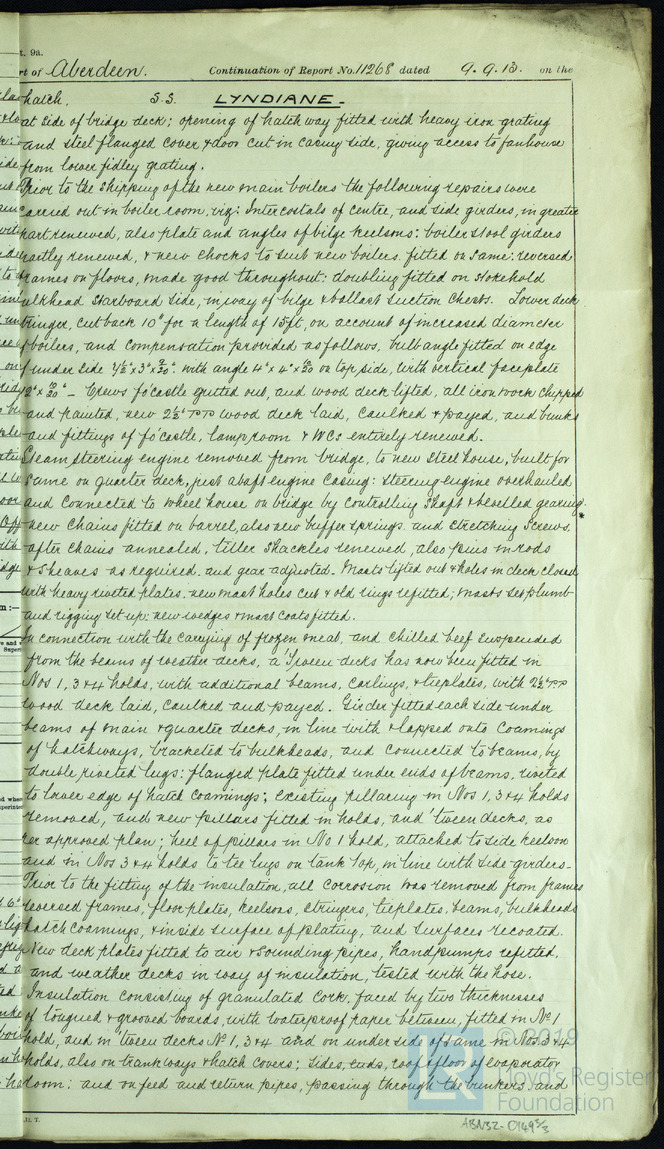 t. 9a.
rt of Aberdeen. Continuation of Report No. 11268 dated 9.9.13. on the
hatch. S.S. LYNDIANE.
at side of bridge deck; opening of hatchway fitted with heavy iron grating
and steel flanged cover & door cut in casing side, giving access to fanhouse
from lower fidley grating.
Prior to the shipping of the new main boilers the following repairs were
carried out in boiler room, viz: Intercostals of centre, and side girders, in greater
part renewed, also plate and angles of bilge keelsons: boiler stool girders
partly renewed, & new chocks to suit new boilers, fitted on same: reversed
frames on floors, made good throughout: doubling fitted on stokehold
ulkhead starboard side, in way of bilge & ballast suction chests. Lower deck
tringer, cut back 10" for a length of 15ft, on account of increased diameter
of boilers, and compensation provided as follows, bulb angle fitted on edge
under side with angle 4" x 4" x on top side, with vertical faceplate
Crews fo'castle gutted out, and wood deck lifted, all iron work chipped
and painted, new 2½" P.P. wood deck laid, caulked & payed, and bunks
and fittings of fo'castle, lamp room & WCs entirely renewed.
Steam steering engine removed from bridge, to new steel house, built for
same on quarter deck, just abaft engine casing: steering engine overhauled
and connected to wheel house on bridge by controlling shaft & bevelled gearing.
new chains fitted on barrel, also new buffer springs and stretching screws, *
after chains annealed, tiller shackles renewed, also pins in rods
& sheaves as required, and gear adjusted. Masts lifted out & holes in deck closed
with heavy riveted plates, new mast holes cut & old rings refitted; masts set plumb
and rigging set up: new wedges & mast coats fitted.
In connection with the carrying of frozen meat, and chilled beef suspended
from the beams of weather decks, a 'tween decks has now been fitted in
Nos 1, 3 & 4 holds, with additional beams, carlings, & tieplates, with 2½" P.P.
wood deck laid, caulked and payed. Girder fitted each side under
beams of main & quarter decks, in line with & lapped onto coamings
of hatchways, bracketed to bulkheads, and connected to beams, by
double riveted lugs: flanged plate fitted under ends of beams, riveted
to lower edge of hatch coamings; existing pillaring in Nos 1, 3 & 4 holds
removed, and new pillars fitted in holds, and 'tween decks, as
per approved plan; heel of pillars in No 1 hold, attached to side keelson
and in Nos 3 & 4 holds to tee lugs on tank top, in line with side girders.
Prior to the fitting of the insulation, all corrosion was removed from frames
reversed frames, floor plates, keelsons, stringers, tieplates, beams, bulkheads
hatch coamings, & inside surface of plating, and surfaces recoated.
New deck plates fitted to air & sounding pipes, handpumps refitted,
and weather decks in way of insulation, tested with the hose.
Insulation consisting of granulated cork, faced by two thicknesses
of tongued & grooved boards, with waterproof paper between, fitted in No 1
hold, and in 'tween decks No 1, 3 & 4 and on under side of same in Nos 3 & 4
holds, also on trunkways & hatch covers; sides, ends, roof & floor of evaporator
room: and on feed and return pipes, passing through the bunkers, and
© 2019
Lloyd's Register
Foundation
ABN32-0149 3/3